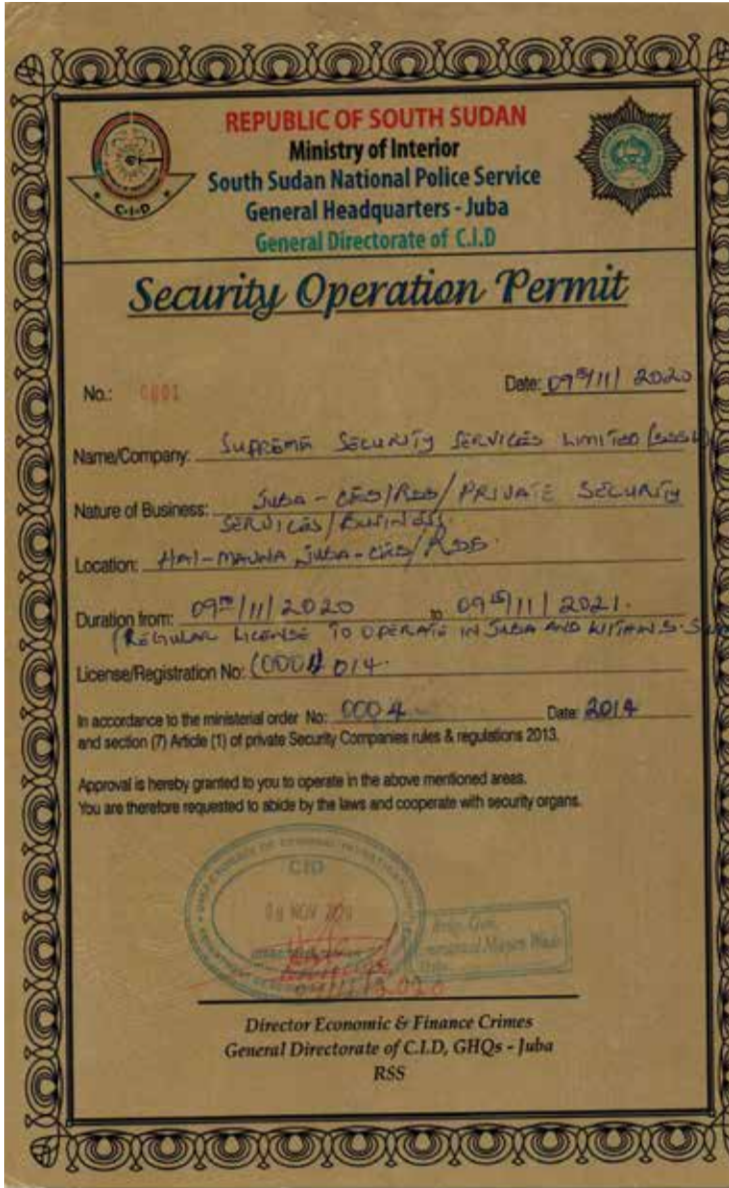 C-I-D
REPUBLIC OF SOUTH SUDAN
Ministry of Interior
South Sudan National Police Service
General Headquarters - Juba
General Directorate of C.I.D
Security Operation Permit
No.: 0001
Date: 09th/11/2020
Name/Company: SUPREME SECURITY SERVICES LIMITED (SSSL)
Nature of Business: JUBA - CES/RSS/PRIVATE SECURITY
SERVICES/BUSINESS.
Location: HAI-MAUNA JUBA-CES/RSS.
Duration from: 09th/11/2020 to 09th/11/2021.
(REGULAR LICENSE TO OPERATE IN JUBA AND WITHIN S.
License/Registration No: 014.
In accordance to the ministerial order No: 0004 Date: 2014
and section (7) Article (1) of private Security Companies rules & regulations 2013.
Approval is hereby granted to you to operate in the above mentioned areas.
You are therefore requested to abide by the laws and cooperate with security organs.
CID
NOV
Brig. Gen.
Director Economic & Finance Crimes
General Directorate of C.I.D, GHQs - Juba
RSS